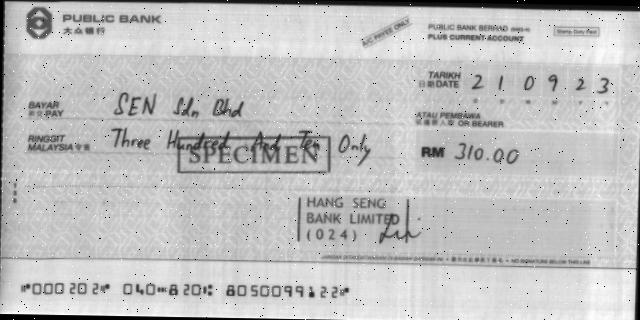 PUBLIC BANK
大众银行
A/C PAYEE ONLY
PUBLIC BANK BERHAD
PLUS CURRENT ACCOUNT
Stamp Duty Paid
TARIKH
日期 DATE 2 1 0 9 2 3
BAYAR
PAY SEN Sdn Bhd
ATAU PEMBAWA
OR BEARER
RINGGIT
MALAYSIA Three Hundred And Ten Only
SPECIMEN
RM 310.00
HANG SENG
BANK LIMITED
(024)
NO SIGNATURE BELOW THIS LINE
⑈000202⑈ 040⑉8201⑆ 8050099122⑈